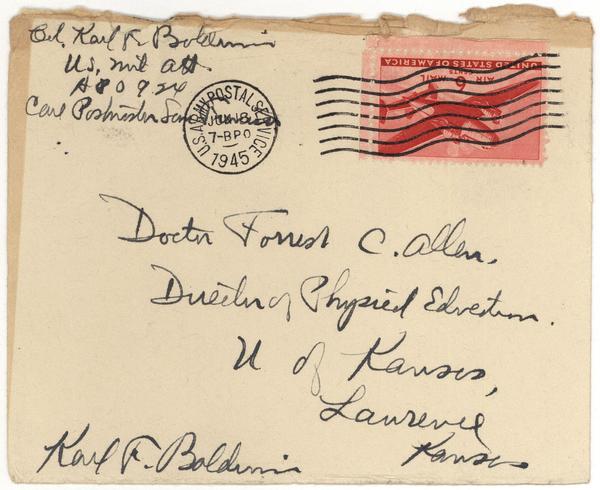 Col. Karl F. Baldwin
U.S. Mil Att
APO 924
Care Postmaster San
U.S. ARMY POSTAL SERVICE
JUN 18
7-BPO
1945
UNITED STATES OF AMERICA
AIR MAIL
6 CENTS
Doctor Forrest C. Allen.
Director of Physical Education.
U of Kansas,
Lawrence
Kansas
Karl F. Baldwin